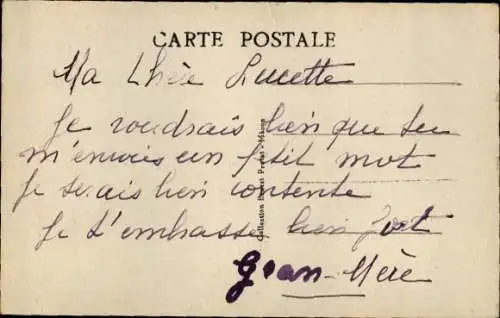 CARTE POSTALE
Ma Chère Lucette
Je voudrais bien que tu
m'envois un petit mot
Je serais bien contente
Je t'embrasse bien fort
Gran-Mère
Collection Proret - Mâcon